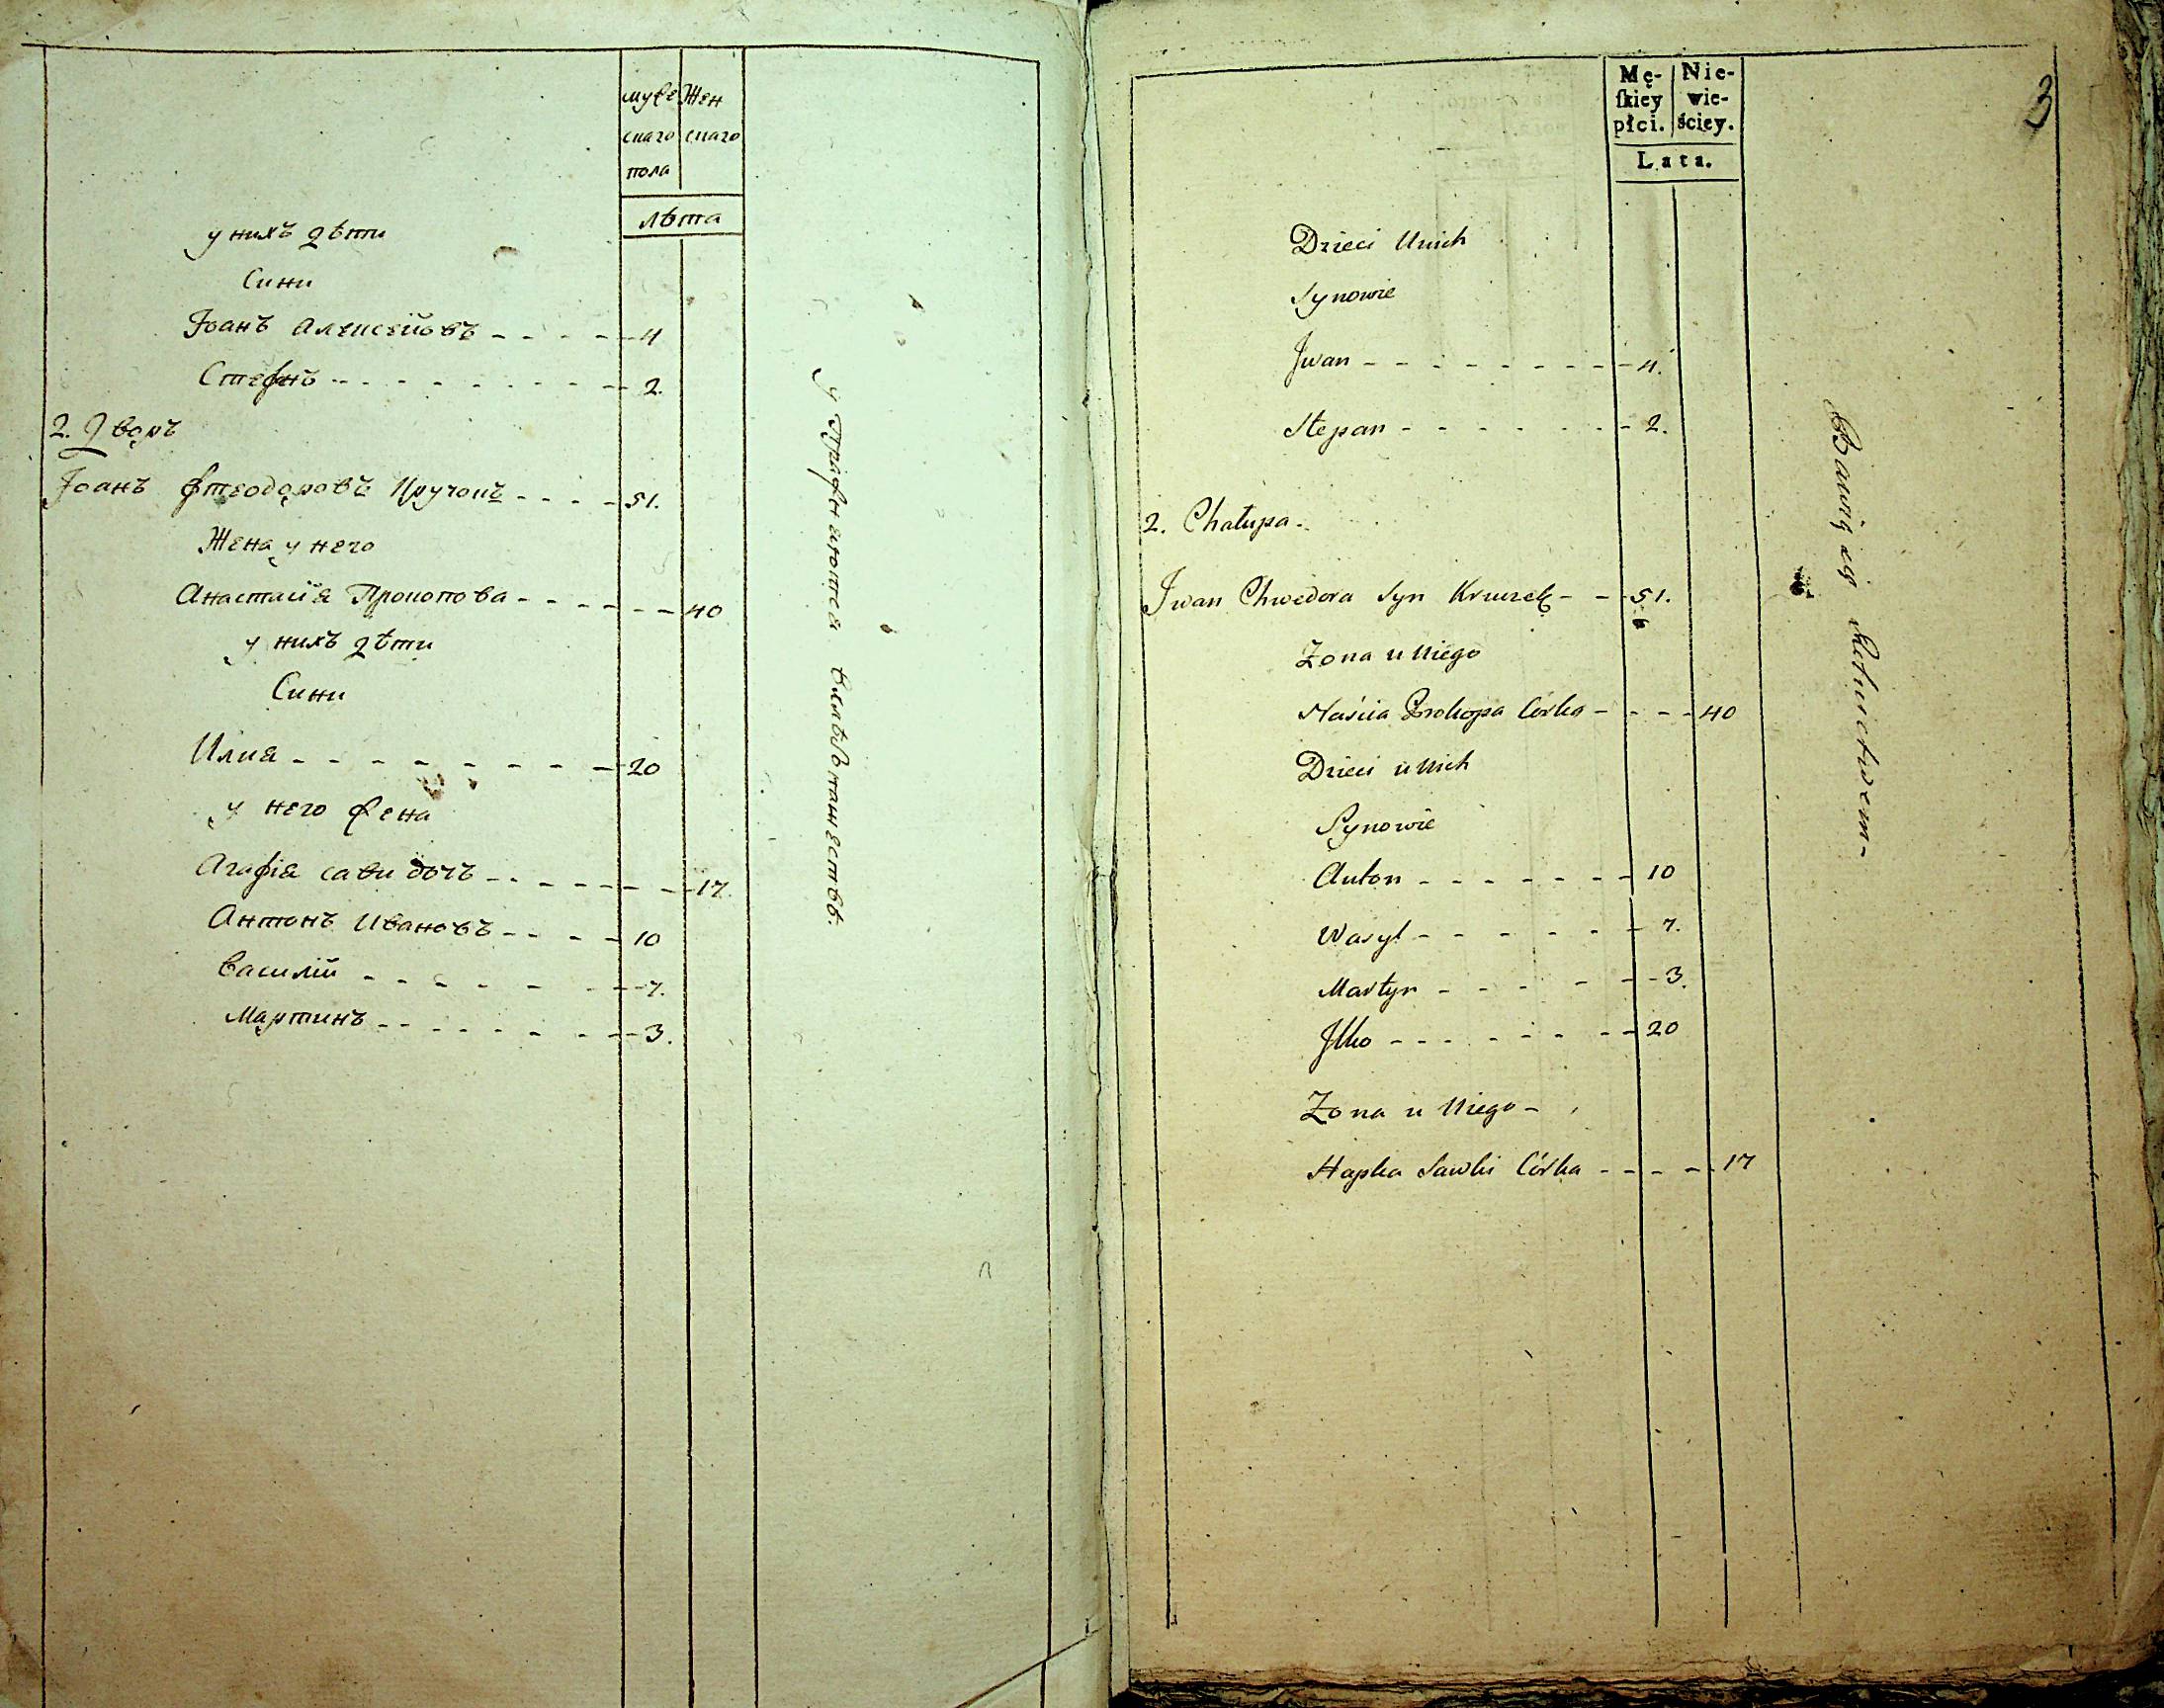 муже Жен
скаго скаго
пола
лѣта
у нихъ дѣти
Сини
Іоанъ Алексейовъ - - - - 4
Стефнъ - - - - - - - - 2.
2. Дворъ
Іоанъ Фтеодоровъ Кручокъ - - - - 51.
Жена у него
Анастасія Прокопова - - - - - - 40
у нихъ дѣти
Сини
Илия - - - - - - - - 20
у него жена
Агафія савки дочъ - - - - - - - 17.
Антонъ Ивановъ - - - - 10
Василій - - - - - - - 7.
Мартинъ - - - - - - - - 3.
упражняются
Mę- Nie-
ſkiey wie-
płci. ściey.
Lata.
3
Dzieci Unich
Synowie
Jwan - - - - - - - - - 4.
Stepan - - - - - - - 2.
2. Chałupa.
Jwan Chwedora Syn Kruczek - - 51.
Żona u Niego
Naścia Prokopa Córka - - - - 40
Dzieci u Nich
Synowie
Anton - - - - - - - 10
Wasyl - - - - - - 7.
Martyn - - - - - - 3.
Jlko - - - - - - - - 20
Żona u Niego -
Hapka Sawki Córka - - - - 17
Bawią się Rolnictwem -